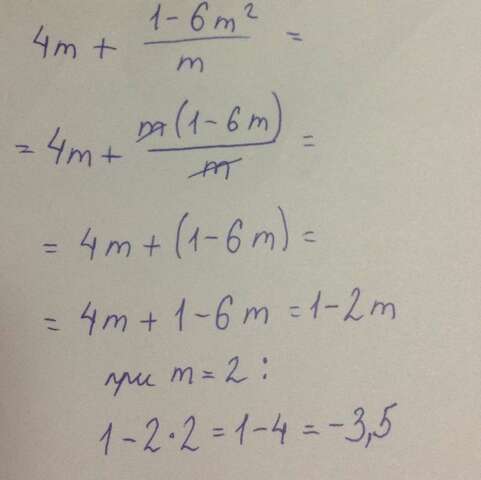 4m + (1-6m²)/m =
= 4m + m(1-6m)/m =
= 4m + (1-6m) =
= 4m + 1-6m = 1-2m
при m = 2 :
1-2·2 = 1-4 = -3,5